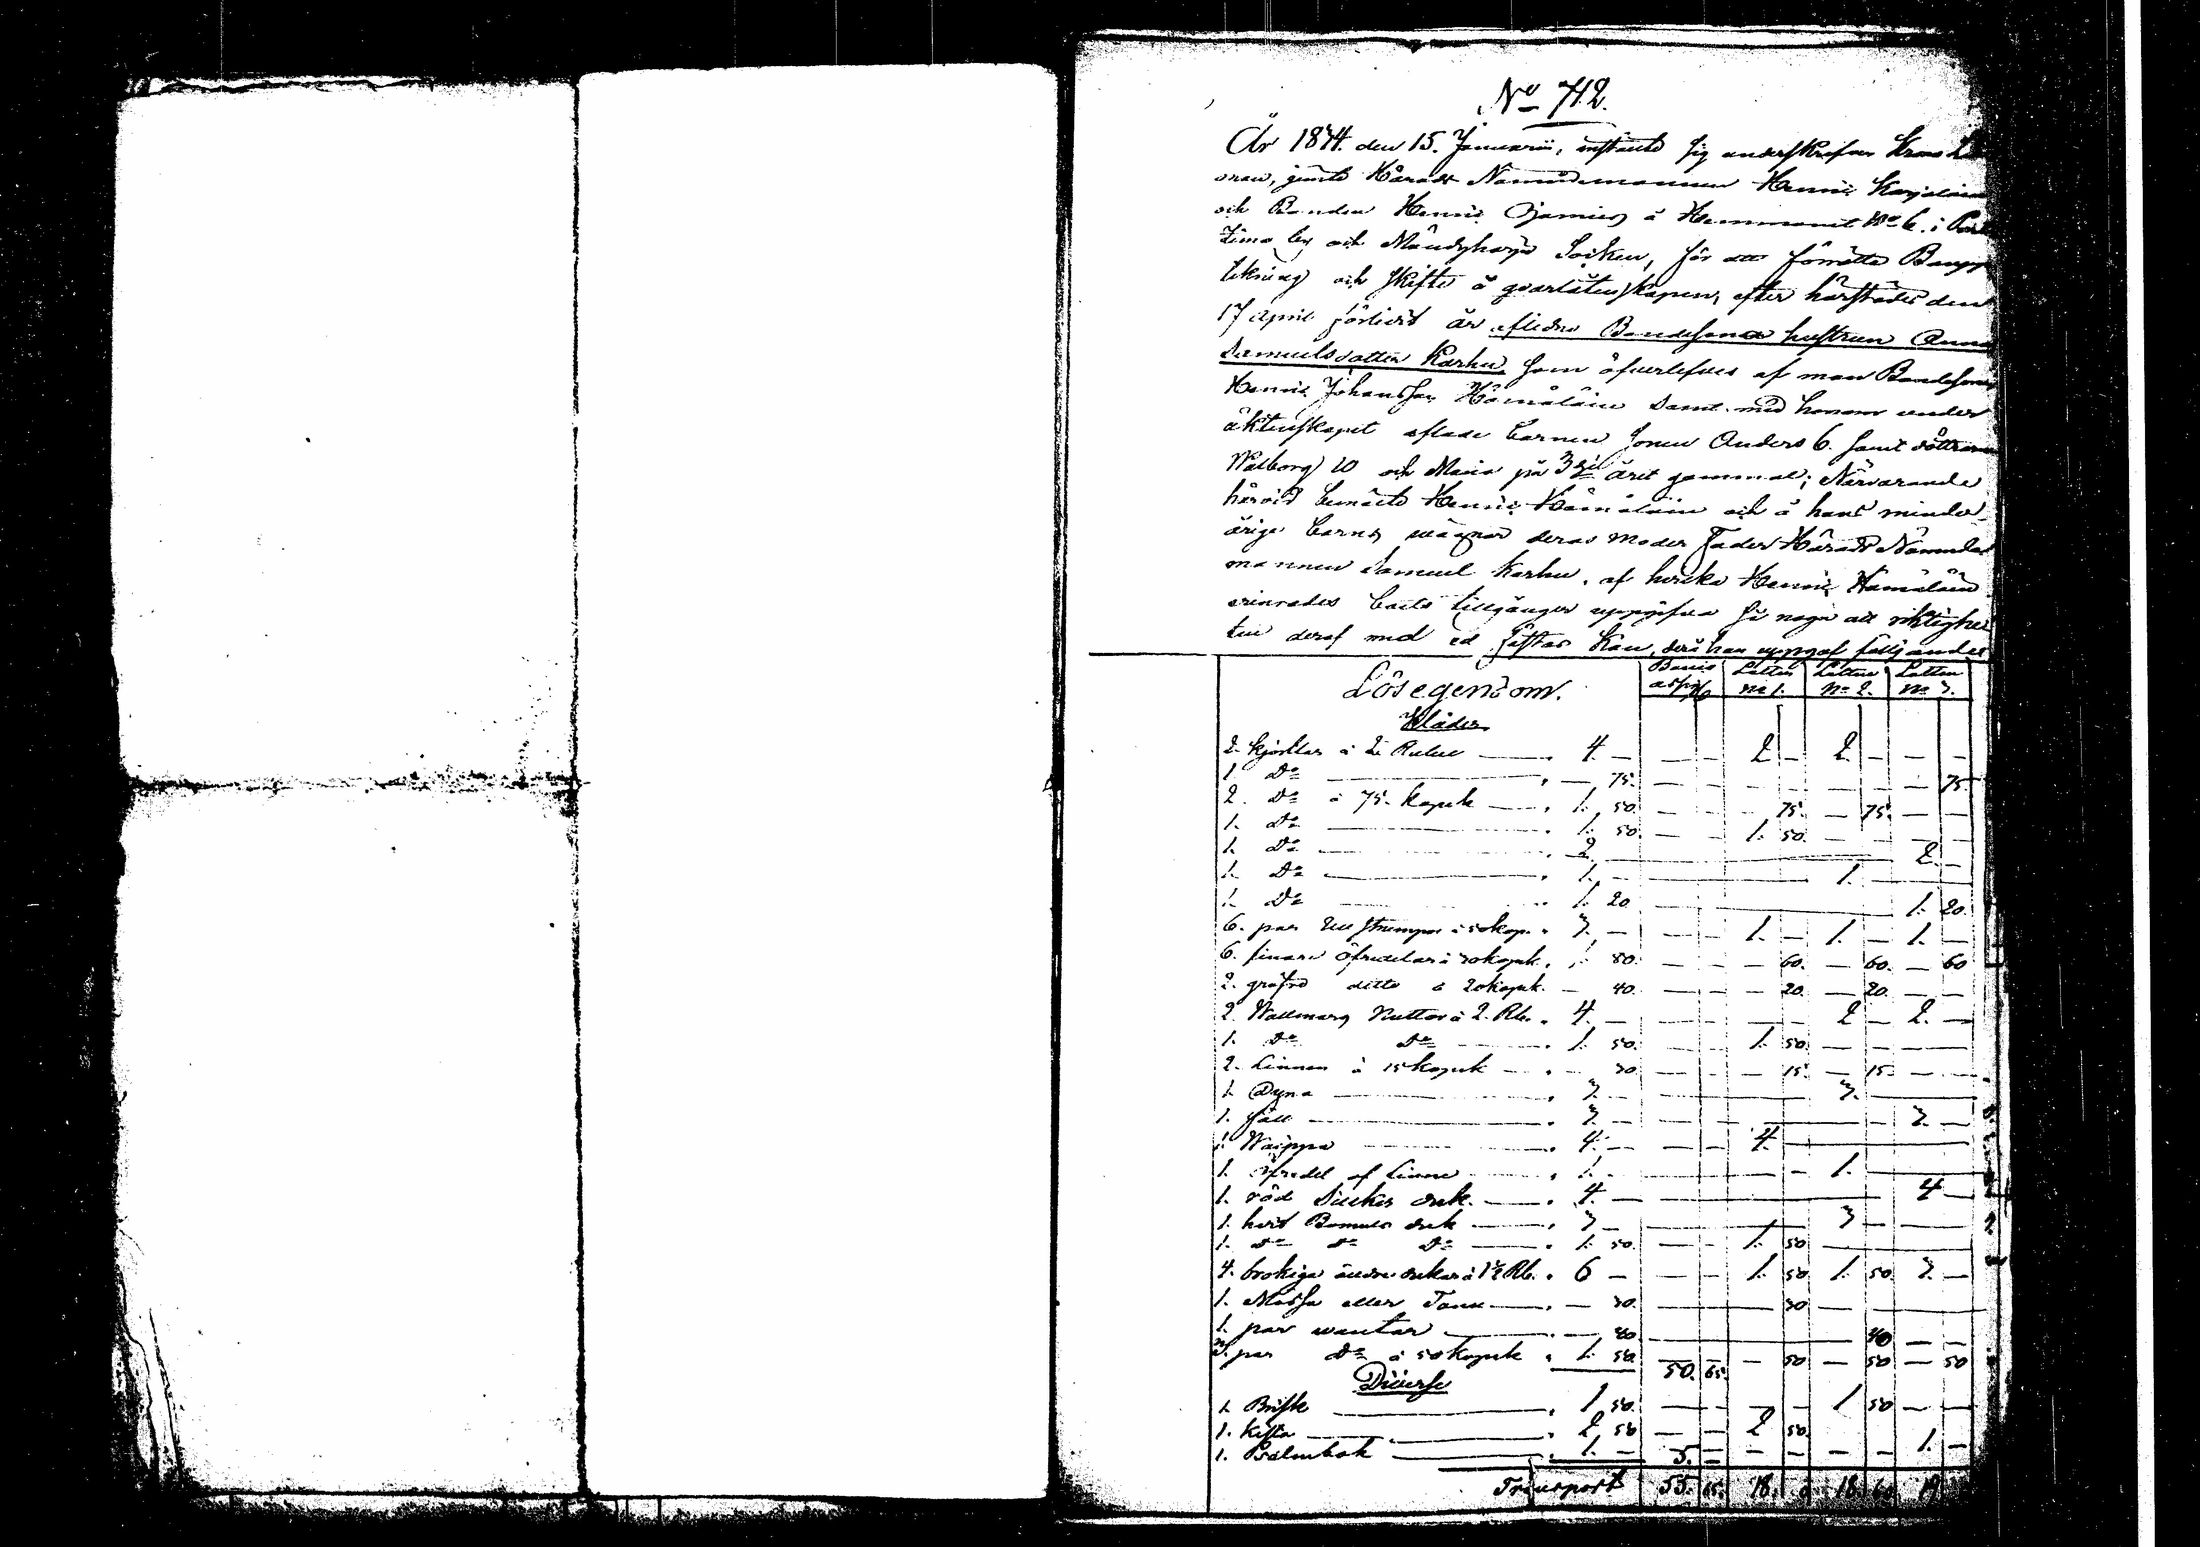 No 712.
År 1874. den 15. Januarii, instälde sig underskrifven Krono Läns
man, jemte Härads Nämndemannen Henric Karjalain
och Bonden Henric Ojamies å Hemmanet No 6. i
by och Mändyharju Socken, för att förrätta Boupp
tekning och skifte å qvarlåtenskapen, efter härstädes den
17 April förlidit år aflidne Bondesona hustrun Anna
Samuelsdotter Karhu som öfverlefves af man Bondesonen
Henric Johansson Hämäläin samt med honom under
äktenskapet aflade barnen sonen Anders 6. samt döttrarne
Walborg 10 och Maria på 3dje året gammal; Närvarande
härvid bemälte Henric Hämäläin och å hans minder
åriga barns vägnar deras Moder Fader Härads Nämnde
mannen Samuel Karhu, af hvilka Henric Hämäläin
erinrades boets tillgångar uppgifva så noga att riktighe
ten deraf med ed fästas kan, derå han uppgaf följande
Lösegendom. Lotten No 1. Lotten No 2. Lotten No 3.
Kläder
2. kjortlar à 2 Rubel — 4. — 2 — 2 —
1. Do — 75. — 75.
2. Do à 75. kopek — 1. 50. — 75. — 75.
1. Do — 1. 50. — 1. 50.
1. Do — 2. — 2.
1. Do — 1. — 1.
1. Do — 1. 20. — 1. 20.
6. par Ull strumpor à 50 kop. 3. — 1. — 1. — 1. —
6. finare öfredelar à 30 kopek. 1. 80. — 60. — 60. — 60
2. gröfre ditto à 20 kopek. — 40. — 20. — 20.
2. Wallmars Kuttar à 2. Rbl. 4. — 2 — 2. —
1. Do Do — 1. 50. — 1. 50.
2. Linnen à 15 kopek — 30. — 15. — 15.
1. Dyna — 3. — 3.
1. fäll — 3. — 3.
1. Waippa — 4. — 4.
1. öfredel af Linne — 1. — 1.
1. röd Silckes duk. — 4. — 4 —
1. hvit Bomuls duk — 3 — 3 —
1. Do Do Do — 1. 50. — 1. 50
4. brokiga andre dukar à 1½ Rbl. 6 — 1. 50 1. 50. 3. —
1. Mössa eller Tanu — 30. — 30
1. par vantar — 40. — 40
3. par Do à 50 kopek 1. 50. 50. 65. — 50 — 50 — 50
Diverse
1. Brisk — 1 50. — 1 50
1. kista — 2 50 — 2 50.
1. Psalmbok — 1. — 5. — 1. —
Transport 55. 65. 18. 18. 60